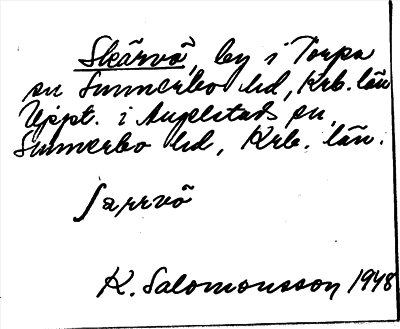 Skärvö, by i Torpa
sn Sunnerbo hd, Krb. län
Uppt. i Angelstads sn,
Sunnerbo hd, Krb. län.
Særvö
K. Salomonsson 1948